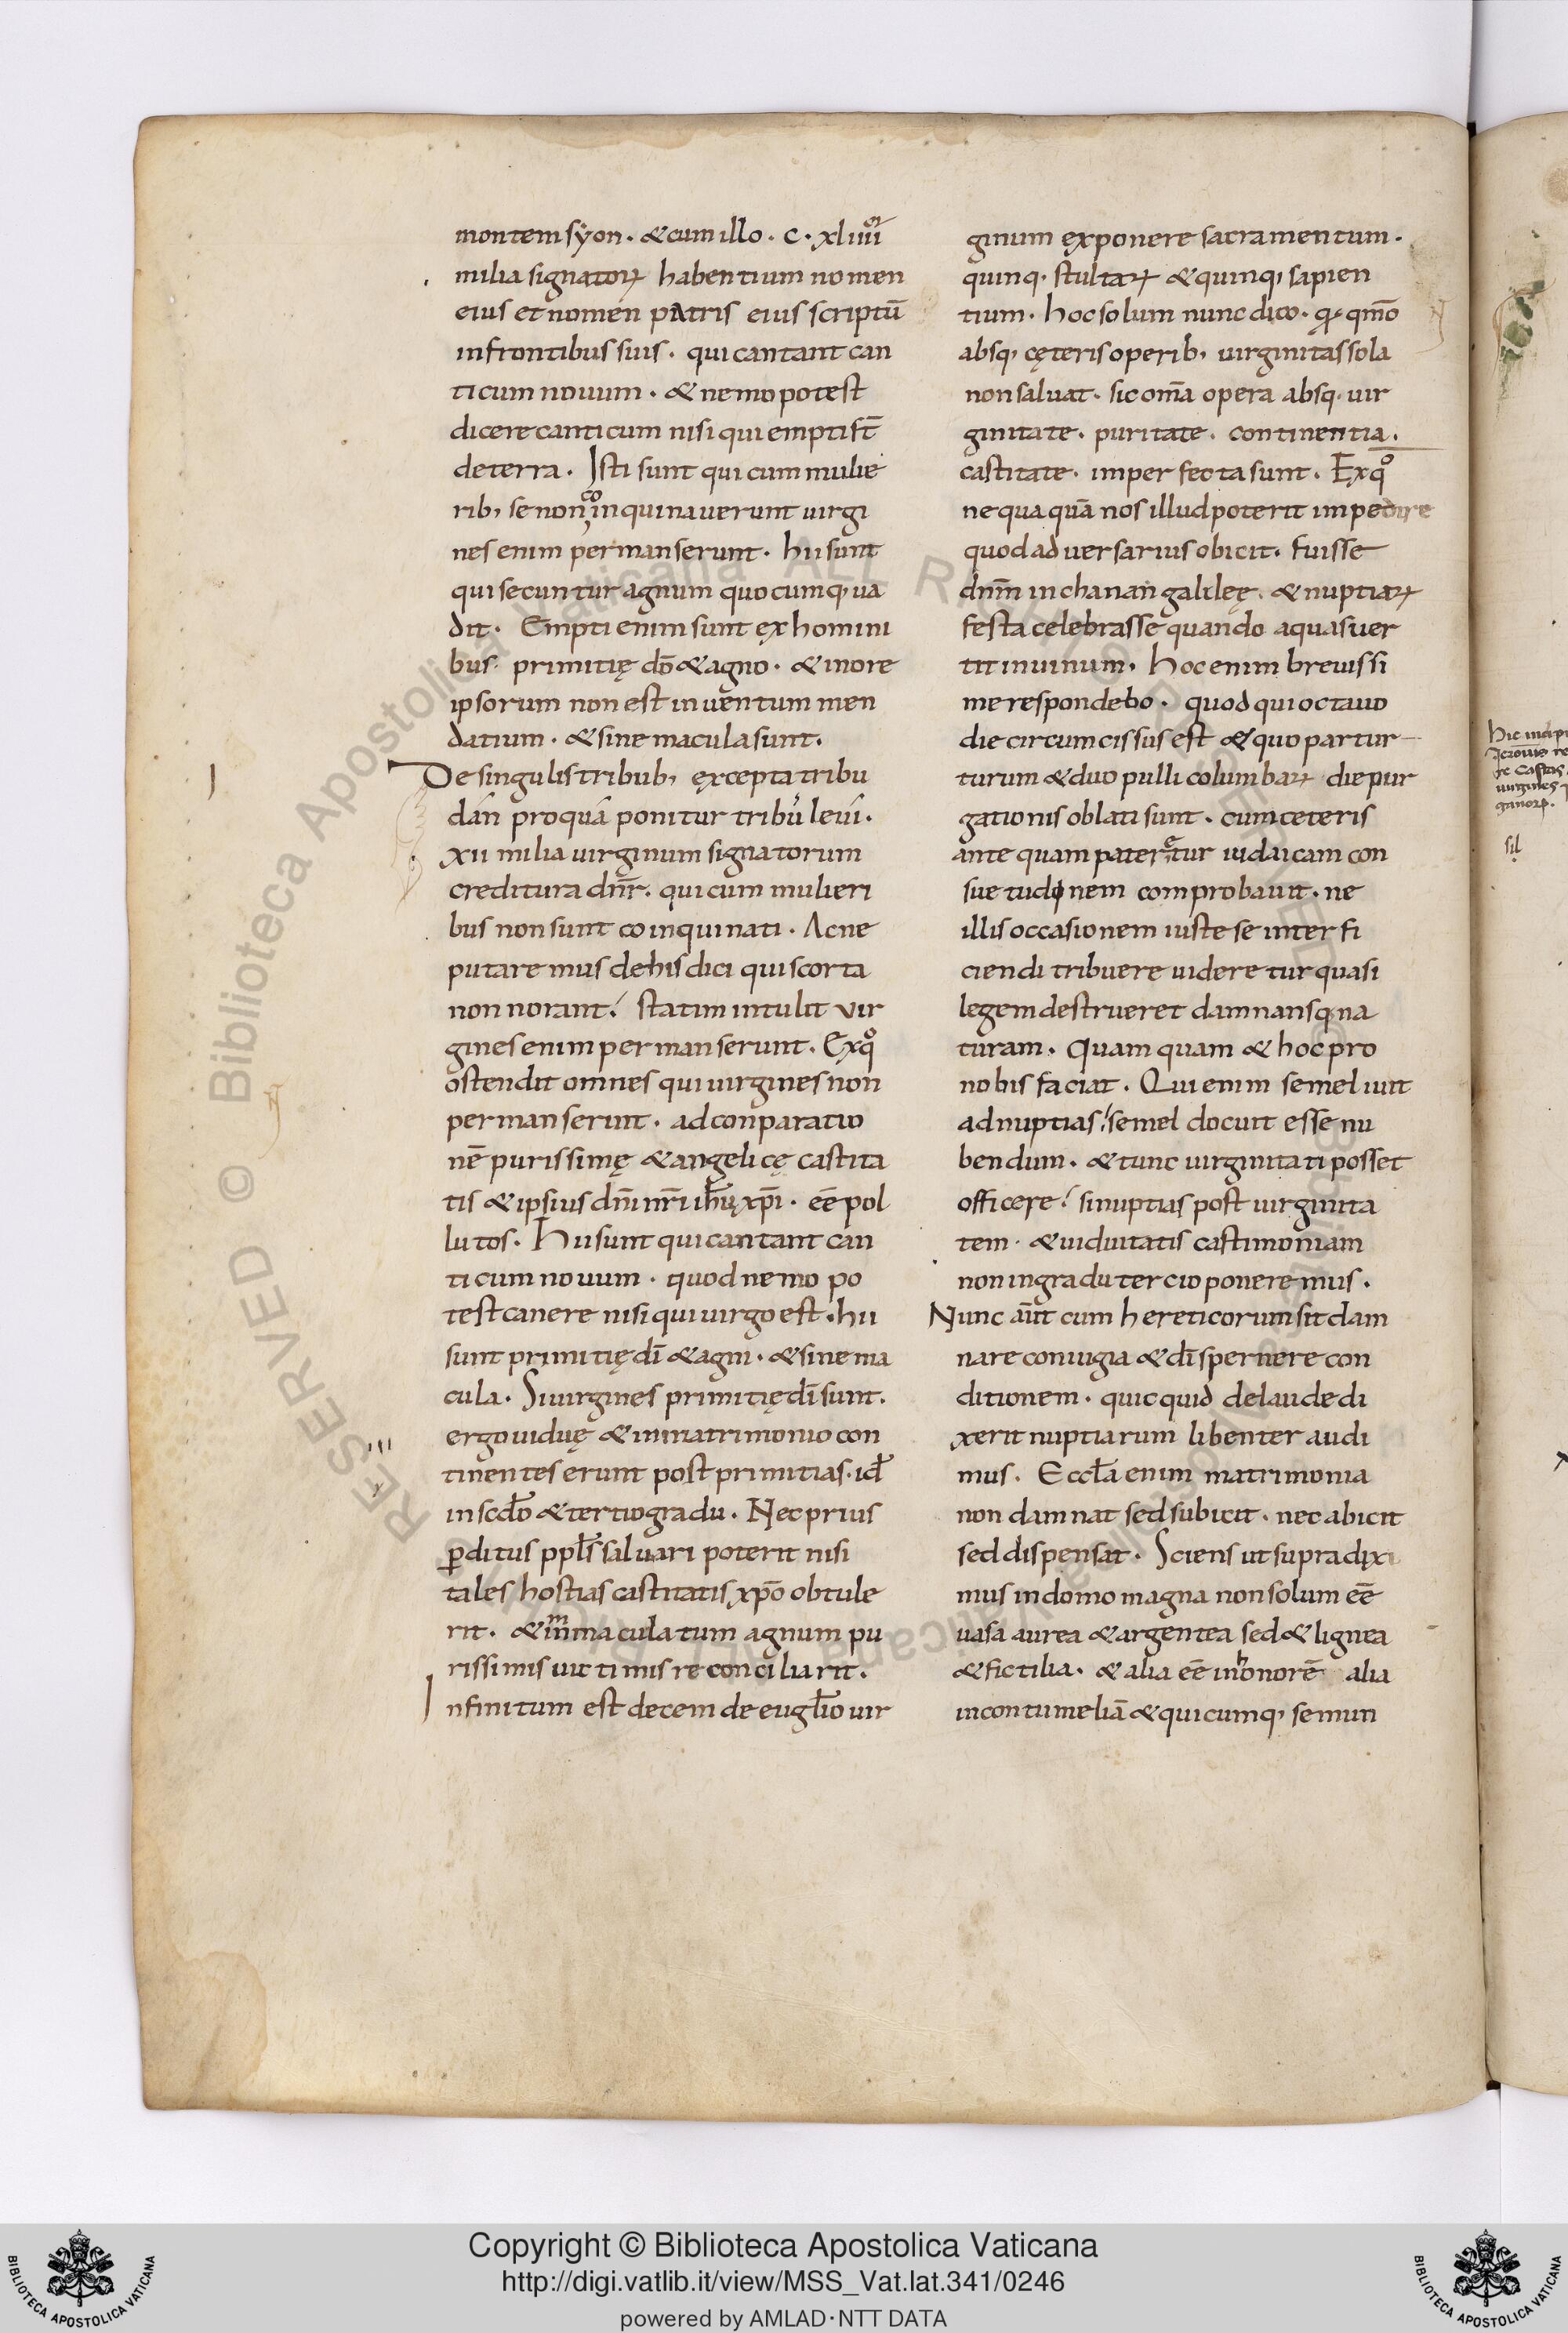 montem syon · & cum illo · c · xl iiii or
milia signatoꝝ habentium nomen
eius et nomen patris eius scriptū
in frontibus suis · qui cantant can
ticum nouum · & nemo potest
dicere canticum nisi qui empti st̄
de terra · Isti sunt qui cum mulie
rib; se non coinquinauerunt uirgi
nes enim permanserunt · hii sunt
qui secuntur agnum quocumq; ua
dit · Empti enim sunt ex homini
bus primitię dō & agno · & in ore
ipsorum non est inuentum men
datium · & sine macula sunt.
De singulis tribub; excepta tribu
dan pro quā ponitur tribu leui.
xii milia uirginum signatorum
creditura dnr̄ · qui cum mulieri
bus non sunt coinquinati · Ac ne
putaremus de his dici qui scorta
non norant · statim intulit vir
gines enim permanserunt · Exqͦ
ostendit omnes qui uirgines non
permanserunt · ad conparatio
nē purissimę & angelicę castita
tis & ipsius dn̄i nr̄i ihū xpī · eē pol
lutos · Hii sunt qui cantant can
ticum nouum · quod nemo po
test canere nisi qui uirgo est · hii
sunt primitię dī & agni · & sine ma
cula · Si uirgines primitię dī sunt.
ergo uiduę & in matrimonio con
tinentes erunt post primitias · id̄
in scdō & tertio gradu · Nec prius
ꝑditus ppl̄s saluari poterit nisi
tales hostias castitatis xpō obtule
rit · & inmaculatum agnum pu
rissimis uictimis reconciliarit.
Infinitum est decem de euglīo uir
ginum exponere sacramentum.
quinq; stultaꝝ & quinq; sapien
tium · hoc solum nunc dico · qꝫ qm̄o
absq; cęteris operib; uirginitas sola
non saluat · sic om̄a opera absq; uir
ginitate · puritate · continentia.
castitate · imperfecta sunt · Exqͦ
nequaquā nos illud poterit impedire
quod aduersarius obicit · fuisse
dnm̄ in chanan galileę · & nuptiaꝝ
festa celebrasse quando aquas uer
tit in uinum · Hoc enim breuissi
me respondebo · quod qui octauo
die circumcissus est & quo par tur
turum & duo pulli columbaꝝ die pur
gationis oblati sunt · cum ceteris
ante quam pateretur iudaicam con
suetudinem comprobauit · ne
illis occasionem iuste se interfi
ciendi tribuere uideretur quasi
legem destrueret damnansq; na
turam · Quamquam & hoc pro
nobis faciat · Qui enim semel iuit
ad nuptias · semel docuit esse nu
bendum · & tunc uirginitati posset
officere · si nuptias post uirginita
tem · & uiduitatis castimoniam
non in gradu tercio poneremus.
Nunc aūt cum hereticorum sit dam
nare coniugia & dī spernere con
ditionem · quicquid de laude di
xerit nuptiarum libenter audi
mus · Eccl̄a enim matrimonia
non damnat sed subicit · nec abicit
sed dispensat · Sciens ut supra dixi
mus in domo magna non solum eē
uasa aurea & argentea sed & lignea
& fictilia · & alia eē in honorē alia
in contumeliā & quicumq; se mun
Hic incipi
sil
RESERVED © Biblioteca Apostolica Vaticana ALL RIGHTS RESERVED © Biblioteca Apostolica Vaticana ALL RIGHTS
Copyright © Biblioteca Apostolica Vaticana
http://digi.vatlib.it/view/MSS_Vat.lat.341/0246
powered by AMLAD·NTT DATA
BIBLIOTECA APOSTOLICA VATICANA
BIBLIOTECA APOSTOLICA VATICANA